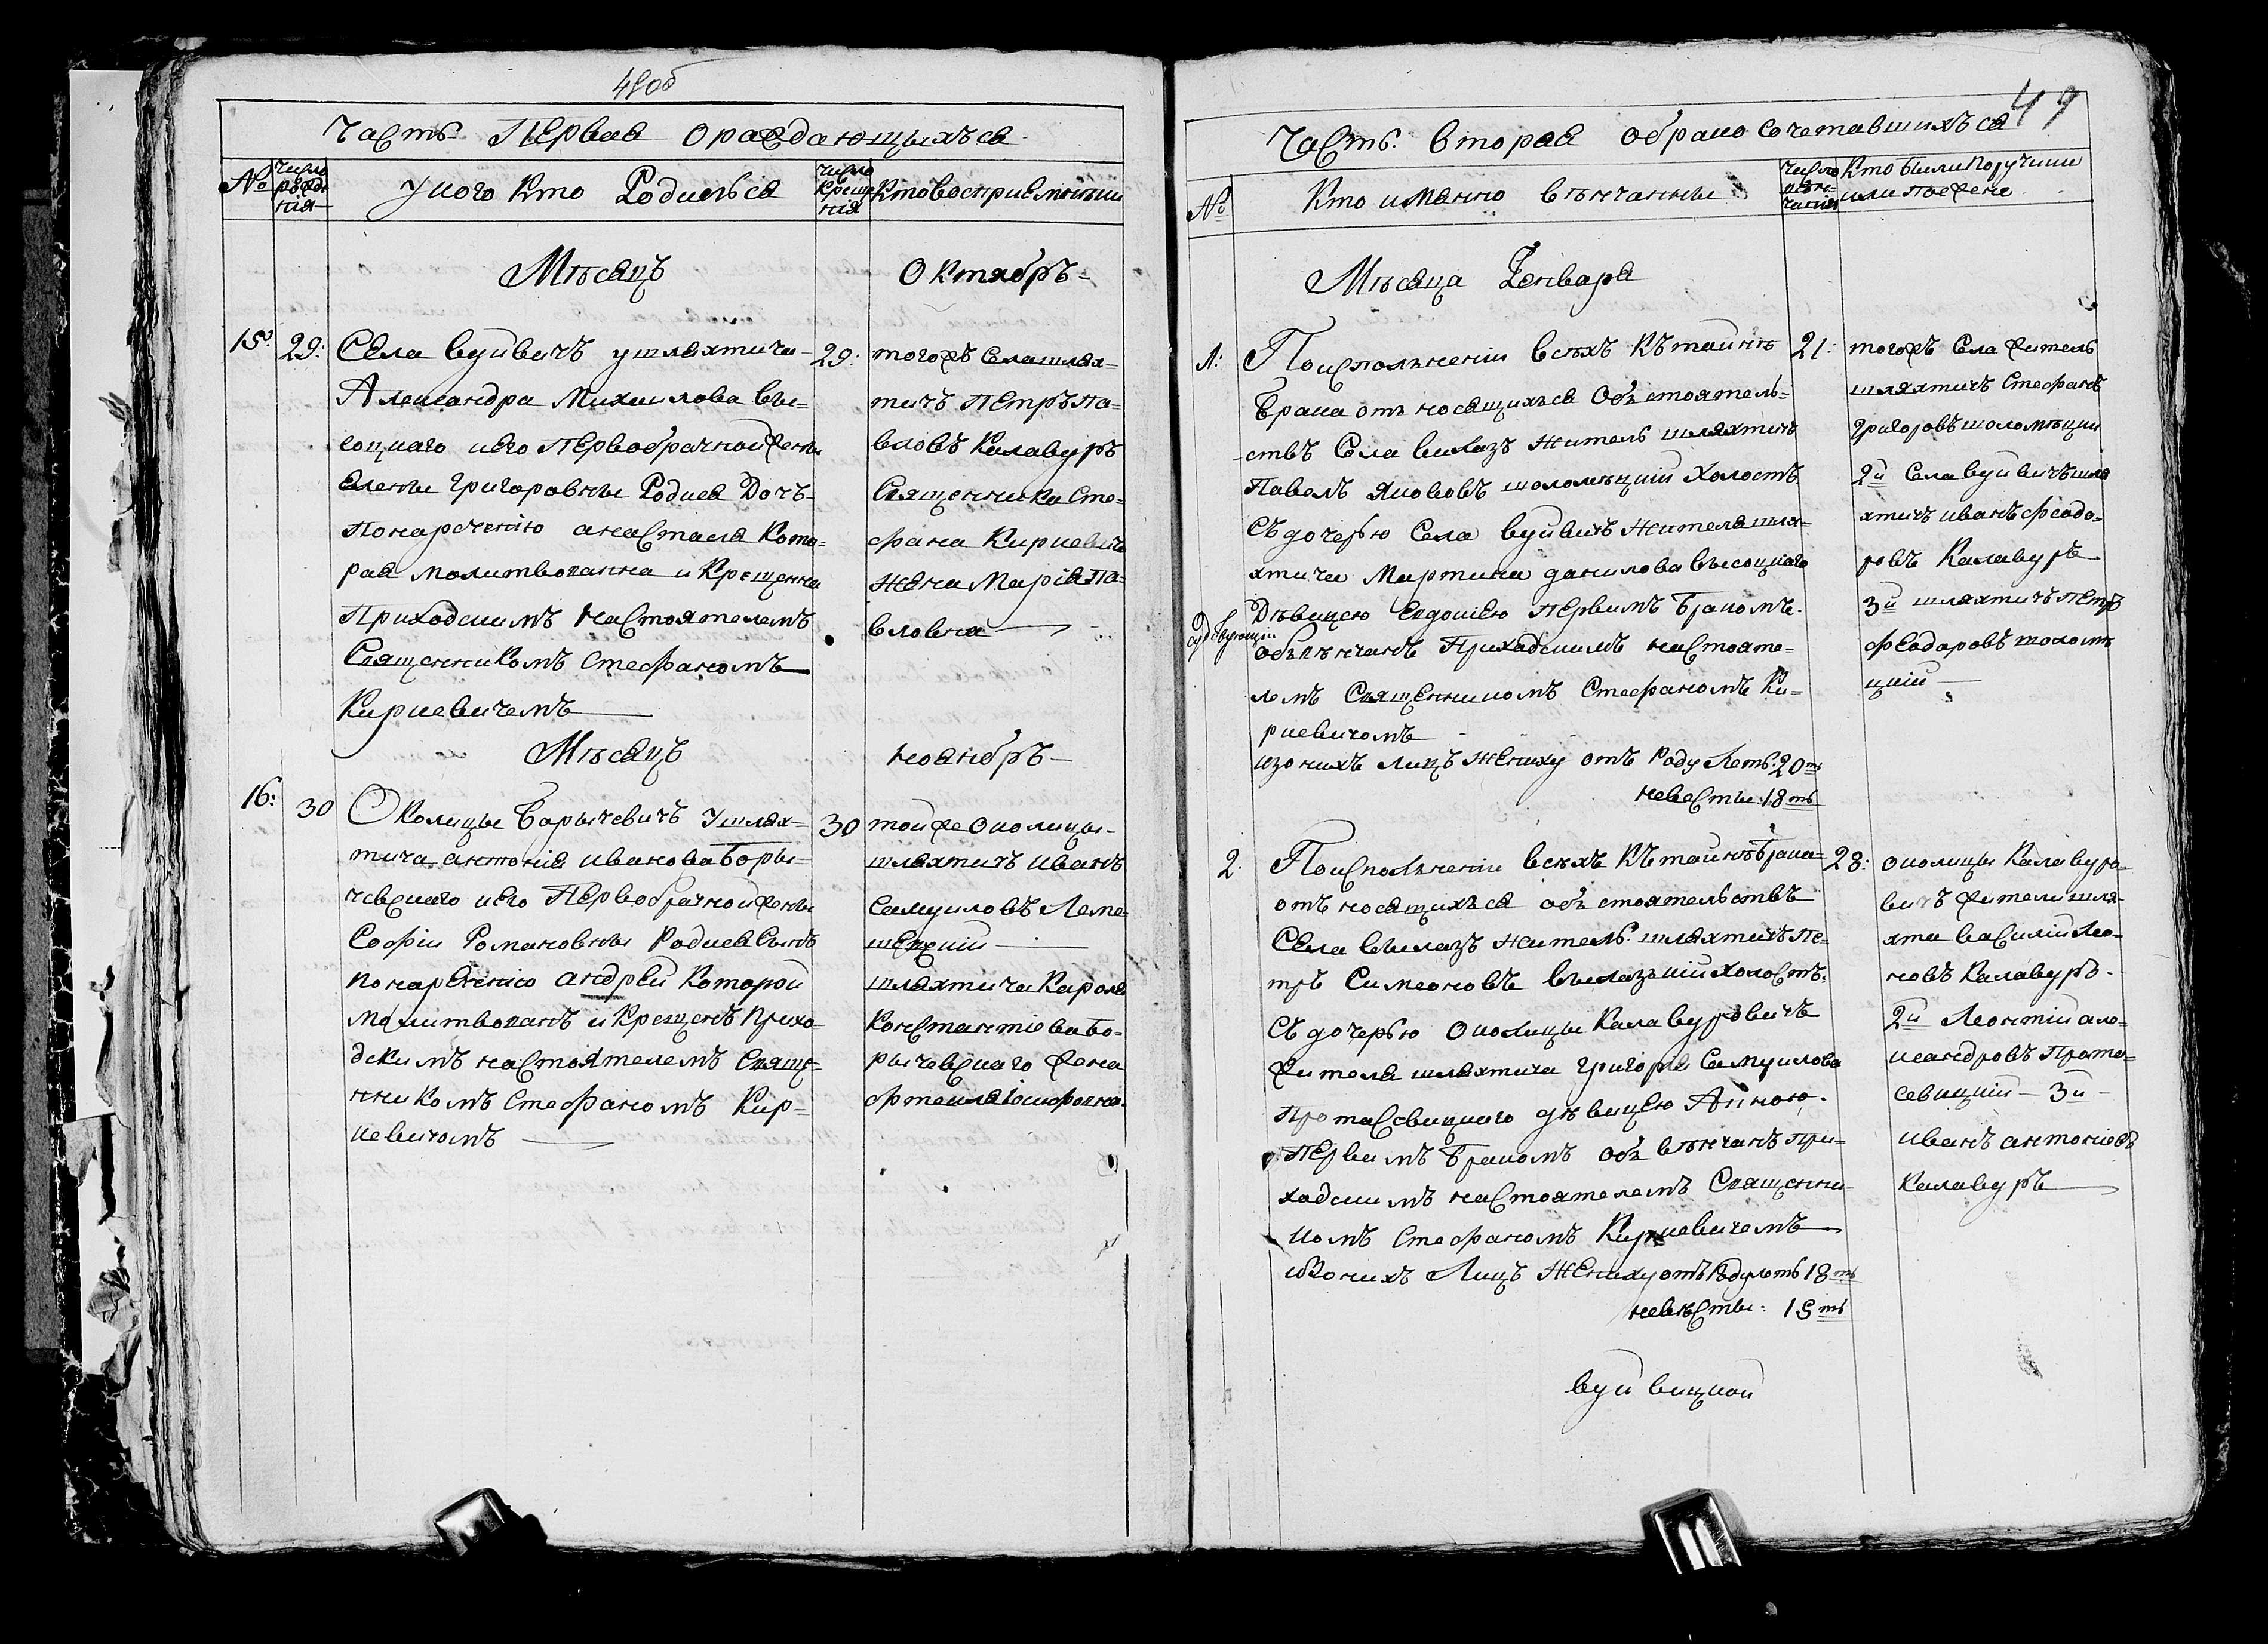 48об
Часть Первая о раждающыхъся
№
Число рожде
нія
У кого Кто Родилься
Число
Креще
нія
Кто воспріемники
Мѣсяцъ Октябръ
15. 29: Села Вуйвичъ у шляхтича
Александра Михаилова Вы=
соцкаго и его Первобрачной жены
Елены Григоровны Родися Дочъ
По наречению Анастасія Кото=
рая Молитвованна и Крещенна
Приходскимъ Настоятелемъ
Священникомъ Стефаномъ
Киркевичемъ
29: тогожъ Села шлях=
тичъ Петръ Па=
вловъ Калавуръ
Священника Сте=
фана Киркевича
жена Марія Па=
вловна
Мѣсяцъ Ноябръ
16: 30 Околицы Борычевичъ У шлях=
тича Антонія Иванова Боры=
чевскаго и его Первобрачной жены
Софіи Романовны Родися Сынъ
по наречению Андрей Которой
Молитвованъ и Крещенъ Прихо=
дскимъ Настоятелемъ Свяще=
нникомъ Стефаномъ Кир=
кевичомъ
30 той же Околицы
шляхтичъ Иванъ
Самуиловъ Леме=
шевскій
шляхтича Кароля
Константіева Бо=
рычевскаго жена
Фтекля Іосифовна
49
Часть Вторая о брако сочетавшихъся
№
Кто имянно вѣнчанны
Число
вѣн=
чания
Кто были Поручики
или поезжане
Мѣсяца Генваря
1: По исполненіи всѣхъ Къ тайнѣ
Брака относящихъся Обстоятель=
ствъ Села Вылазъ житель шляхтичъ
Павелъ Яковъ Шоломѣцкій Холостъ
Съ дочерью Села Вуйвичъ жителя шля=
хтича Мартина Данилова Высоцкаго
Дѣвицею Евдокіею первимъ Бракомъ
Обвѣнчанъ Приходскимъ Настояте=
лемъ Священникомъ Стефаномъ Ки=
ркевичомъ
изоныхъ Лицъ Жениху отъ Роду Летъ 20ть
Невесты: 18ть
21: тогожъ Села житель
шляхтичъ Стефанъ
Григоровъ Шоломѣцкій
2й Села Вуйвичъ шля
хтичъ Иванъ Феодо=
ровъ Калавуръ
3й шляхтичъ Петръ
Феодоровъ Шоломѣ
цкій
2. По исполненіи всѣхъ Къ тайнѣ Брака
отъносящихъся обстоятельствъ
Села Вылазъ житель шляхтичъ Пе=
тръ Симеоновъ Вылазскій Холостъ
Съ дочерью Околицы Калавуровичъ
жителя шляхтича Григорія Самуилова
Протасовицкаго дѣвицею Анною
первимъ Бракомъ обвѣнчанъ При=
ходскимъ Настоятелемъ Священни=
комъ Стефаномъ Киркевичемъ
изоныхъ Лицъ Жениху отъ Роду летъ 18ть
Невѣсты: 15ть
28: Околицы Калавуро=
вичъ жители шля=
хта Василій Лео=
новъ Калавуръ
2й Леонтій Але=
ксандровъ Прота=
севицкій 3й
Иванъ Антоніевъ
Калавуръ
Вуйвицкой